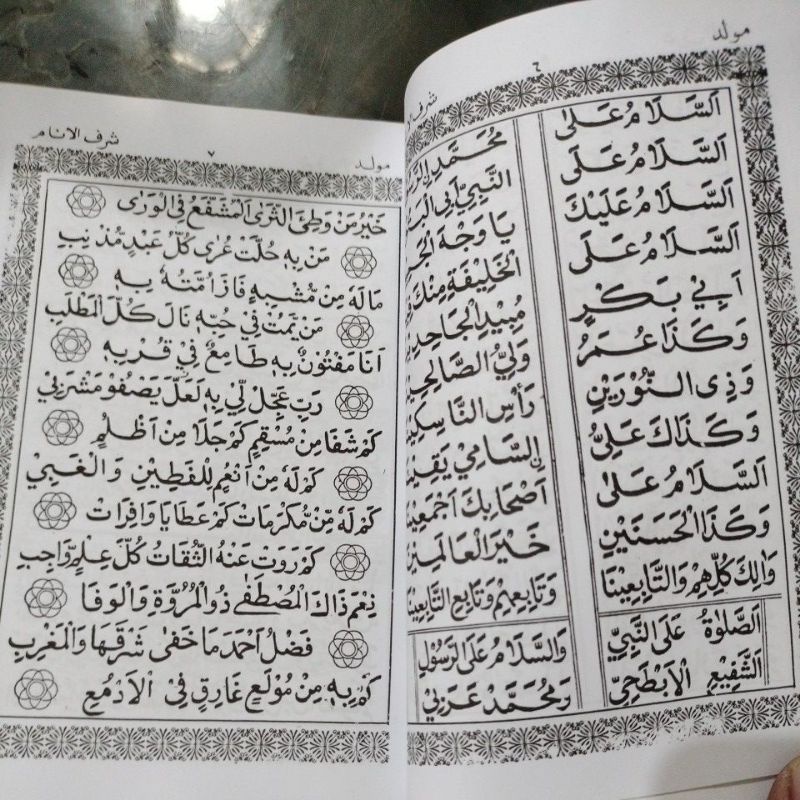 مولد ٦ شرف
اَلسَّلَامُ عَلٰى مُحَمَّدٍ
اَلسَّلَامُ عَلَى النَّبِيِّ اَبِي
اَلسَّلَامُ عَلَيْكَ يَا وَجْهَ
اَلسَّلَامُ عَلَى الْخَلِيْفَةِ مِنْكَ
اَبِيْ بَكْرٍ مُبِيْدِ الْجَاحِدِ
وَكَذَا عُمَرُ وَلِيُّ الصَّالِحِ
وَذِى النُّوْرَيْنِ رَأْسِ النَّاسِكِيْ
وَكَذَاكَ عَلِيُّ السَّامِيْ
اَلسَّلَامُ عَلٰى اَصْحَابِكَ اَجْمَعِيْنَا
وَكَذَا الْحَسَنَيْنِ خَيْرِ الْعَالَمِيْنَ
وَاٰلِكَ كُلِّهِمْ وَالتَّابِعِيْنَا وَتَابِعِهِمْ وَتَابِعِ التَّابِعِيْنَ
اَلصَّلٰوةُ عَلَى النَّبِيِّ وَالسَّلَامُ عَلَى الرَّسُوْلِ
اَلشَّفِيْعِ الْاَبْطَحِيِّ وَمُحَمَّدٍ عَرَبِيِّ
مولد ٧ شرف الانام
خَيْرُ مَنْ وَطِئَ الثَّرٰى اَلْمُشَفَّعُ فِى الْوَرٰى
مَنْ بِهٖ حُلَّتْ عُرٰى كُلِّ عَبْدٍ مُذْنِبِ
مَا لَهٗ مِنْ مُشْبِهٍ فَازَ اُمَّتُهٗ بِهٖ
مَنْ يَمُتْ فِيْ حُبِّهٖ نَالَ كُلَّ الْمَطْلَبِ
اَنَا مَفْتُوْنٌ بِهٖ طَامِعٌ فِيْ قُرْبِهٖ
رَبِّ عَجِّلْ لِيْ بِهٖ لَعَلَّ يَصْفُوْ مَشْرَبِيْ
كَمْ شَفَا مِنْ مُسْقِمٍ كَمْ جَلَا مِنْ اَظْلُمٍ
كَمْ لَهٗ مِنْ اَنْعُمٍ لِلْفَطِيْنِ وَالْغَبِيْ
كَمْ لَهٗ مِنْ مَكْرُمَاتٍ كَمْ عَطَايَا وَافِرَاتْ
كَمْ رَوَتْ عَنْهُ الثِّقَاتُ كُلَّ عِلْمٍ وَاجِبِ
نِعْمَ ذَاكَ الْمُصْطَفٰى ذُو الْمُرُوَّةِ وَالْوَفَا
فَضْلُ اَحْمَدَ مَا خَفٰى شَرْقَهَا وَالْمَغْرِبِ
كَمْ بِهٖ مِنْ مُوْلَعٍ غَارِقٍ فِى الْاَدْمُعِ